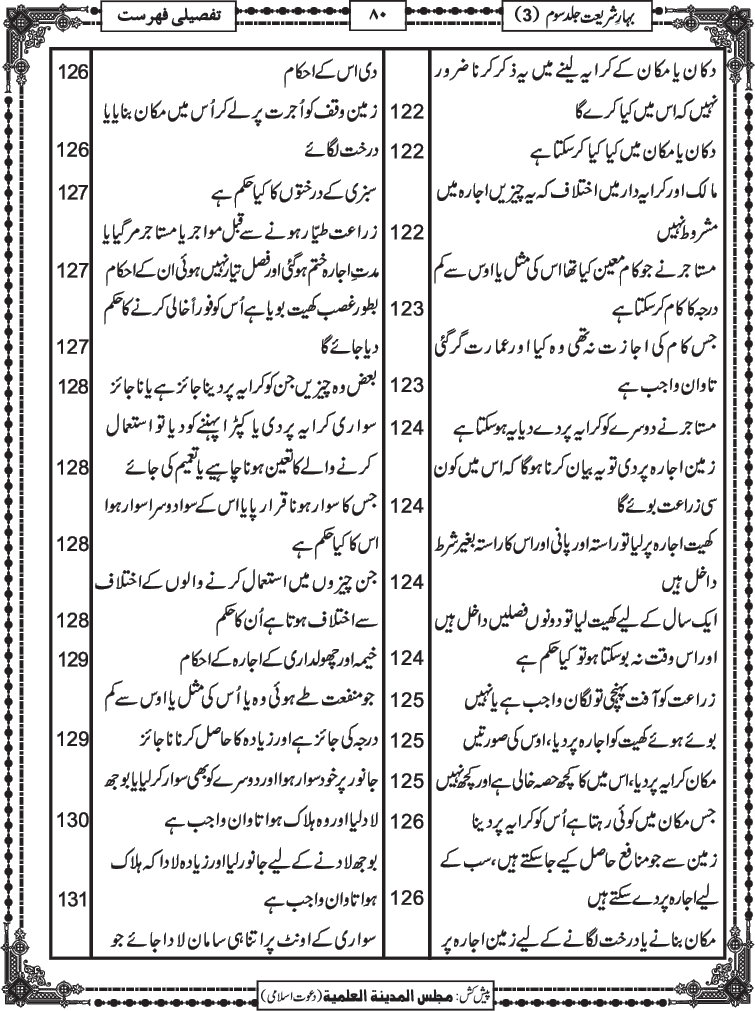 بہارِشریعت جلد سوم (3)
۸۰
تفصیلی فہرست
دکان یا مکان کے کرایہ لینے میں یہ ذکر کرنا ضرور
نہیں کہ اس میں کیا کرے گا 122
دکان یا مکان میں کیا کیا کرسکتا ہے 122
مالک اور کرایہ دار میں اختلاف کہ یہ چیزیں اجارہ میں
مشروط نہیں 122
مستاجر نے جو کام معین کیا تھا اس کی مثل یا اوس سے کم
درجہ کا کام کرسکتا ہے 123
جس کام کی اجازت نہ تھی وہ کیا اور عمارت گر گئی
تاوان واجب ہے 123
مستاجر نے دوسرے کو کرایہ پر دے دیا یہ ہوسکتا ہے 124
زمین اجارہ پر دی تو یہ بیان کرنا ہوگا کہ اس میں کون
سی زراعت بوئے گا 124
کھیت اجارہ پر لیا تو راستہ اور پانی اور اس کا راستہ بغیر شرط
داخل ہیں 124
ایک سال کے لیے کھیت لیا تو دونوں فصلیں داخل ہیں
اور اس وقت نہ بوسکتا ہو تو کیا حکم ہے 124
زراعت کو آفت پہنچی تو لگان واجب ہے یا نہیں 125
بوئے ہوئے کھیت کو اجارہ پر دیا، اوس کی صورتیں 125
مکان کرایہ پر دیا، اس میں کا کچھ حصہ خالی ہے اور کچھ نہیں 125
جس مکان میں کوئی رہتا ہے اُس کو کرایہ پر دینا 126
زمین سے جو منافع حاصل کیے جاسکتے ہیں، سب کے
لیے اجارہ پر دے سکتے ہیں 126
مکان بنانے یا درخت لگانے کے لیے زمین اجارہ پر
دی اس کے احکام 126
زمین وقف کو اُجرت پر لے کر اُس میں مکان بنایا یا
درخت لگائے 126
سبزی کے درختوں کا کیا حکم ہے 127
زراعت طیّار ہونے سے قبل مواجر یا مستاجر مرگیا یا
مدتِ اجارہ ختم ہوگئی اور فصل تیار نہیں ہوئی ان کے احکام 127
بطورِ غصب کھیت بویا ہے اُس کو فوراً خالی کرنے کا حکم
دیا جائے گا 127
بعض وہ چیزیں جن کو کرایہ پر دینا جائز ہے یا ناجائز 128
سواری کرایہ پر دی یا کپڑا پہننے کو دیا تو استعمال
کرنے والے کا تعین ہونا چاہیے یا تعمیم کی جائے 128
جس کا سوار ہونا قرار پایا اس کے سوا دوسرا سوار ہوا
اس کا کیا حکم ہے 128
جن چیزوں میں استعمال کرنے والوں کے اختلاف
سے اختلاف ہوتا ہے اُن کا حکم 128
خیمہ اور چھولداری کے اجارہ کے احکام 129
جو منفعت طے ہوئی وہ یا اُس کی مثل یا اوس سے کم
درجہ کی جائز ہے اور زیادہ کا حاصل کرنا ناجائز 129
جانور پر خود سوار ہوا اور دوسرے کو بھی سوار کرلیا یا بوجھ
لادلیا اور وہ ہلاک ہوا تاوان واجب ہے 130
بوجھ لادنے کے لیے جانور لیا اور زیادہ لادا کہ ہلاک
ہوا تاوان واجب ہے 131
سواری کے اونٹ پر اتنا ہی سامان لادا جائے جو
پیش کش: مجلس المدینۃ العلمیۃ (دعوت اسلامی)